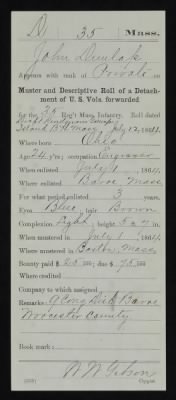 D 35 Mass.
John Dunlap
Appears with rank of Private on
Muster and Descriptive Roll of a Detach-
ment of U. S. Vols. forwarded
for the 35 Reg't Mass. Infantry. Roll dated
Island B. H. Mass. July 12, 1864.
Where born Ohio
Age 24 y'rs; occupation Engineer
When enlisted July 1, 1864.
Where enlisted Barre Mass.
For what period enlisted 3 years.
Eyes Blue; hair Brown
Complexion Light; height 5 ft. 7 in.
When mustered in July 1, 1864.
Where mustered in Boston, Mass.
Bounty paid $ 100; due $ 100
Where credited
Company to which assigned
Remarks: 9 Cong Dist Barre
Worcester County.
Book mark:
Copyist.